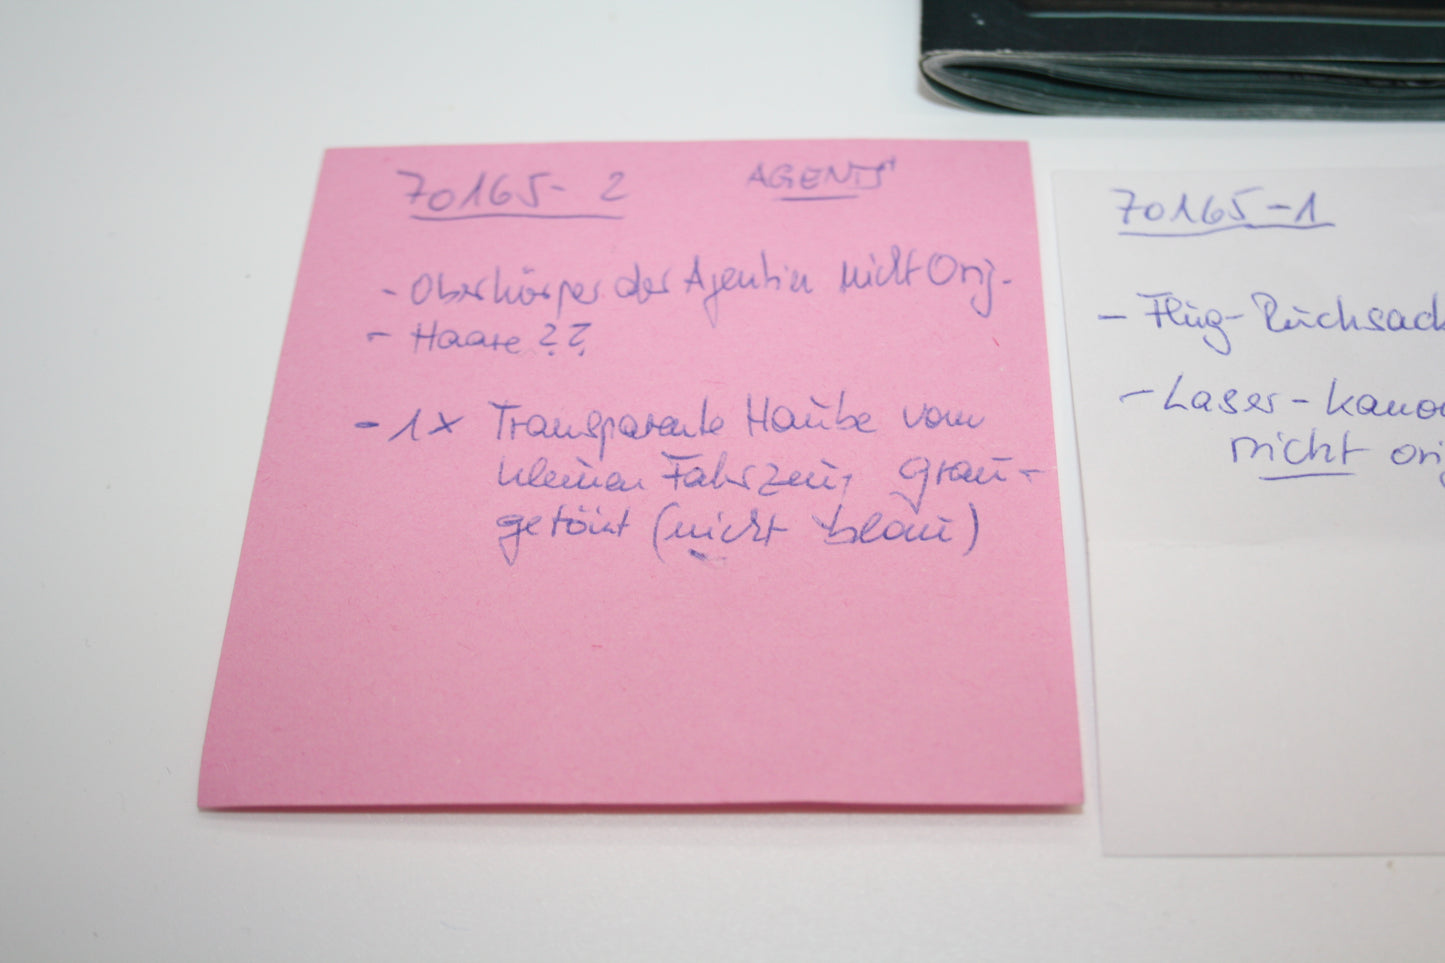 70165-2 AGENTS
- Oberkörper der Agentin nicht Orig.
- Haare ??
- 1x Transparente Haube vom
kleinen Fahrzeug grau-
getönt (nicht blau)
70165-1
- Flug-Rucksack
- Laser-kano
nicht orig